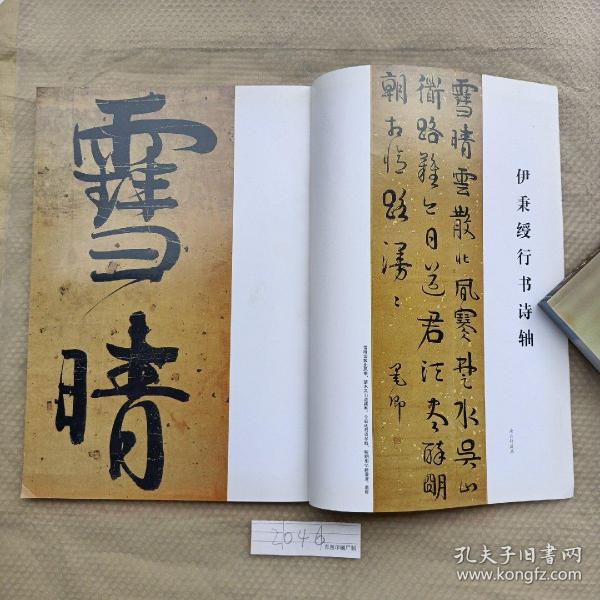 雪
晴
雪晴雲散北風寒楚水吳山
衟路難今日送君須盡醉明
朝相憶路漫〻
墨卿
伊秉绶行书诗轴
2046
孔夫子旧书网
www.kongfz.com